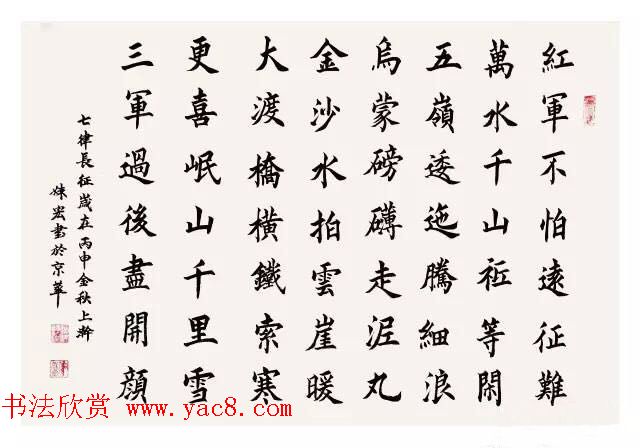 紅軍不怕遠征難
萬水千山祇等閑
五嶺逶迤騰細浪
烏蒙磅礴走泥丸
金沙水拍雲崖暖
大渡橋橫鐵索寒
更喜岷山千里雪
三軍過後盡開顏
七律長征歲在丙申金秋上澣
宏書於京華
书法欣赏 www.yac8.com